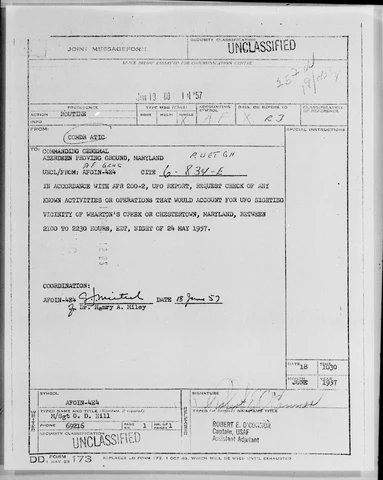 JOINT MESSAGEFORM
SECURITY CLASSIFICATION
UNCLASSIFIED
SPACE ABOVE RESERVED FOR COMMUNICATIONS CENTER
JUN 19 00 14 '57
PRECEDENCE
TYPE MSG (Check)
ACCOUNTING SYMBOL
ORIG. OR REFERS TO
CLASSIFICATION OF REFERENCE
ACTION
ROUTINE
BOOK
MULTI
SINGLE
X
A F
X
R J
INFO
FROM:
SPECIAL INSTRUCTIONS
COMDR ATIC
TO:
COMMANDING GENERAL
RUETGH
ABERDEEN PROVING GROUND, MARYLAND
UNCL/FROM: AFOIN-4E4 CITE 6-834-E
IN ACCORDANCE WITH AFR 200-2, UFO REPORT, REQUEST CHECK OF ANY
KNOWN ACTIVITIES OR OPERATIONS THAT WOULD ACCOUNT FOR UFO SIGHTING
VICINITY OF WHARTON'S CREEK OR CHESTERTOWN, MARYLAND, BETWEEN
2100 TO 2230 HOURS, EDT, NIGHT OF 24 MAY 1957.
COORDINATION:
AFOIN-4E4 DATE 18 June 57
Dr. Henry A. Miley
DATE
18
TIME
1030
MONTH
JUNE
YEAR
1957
SYMBOL
AFOIN-4E4
SIGNATURE
TYPED NAME AND TITLE (Signature, if required)
M/Sgt O. D. Hill
TYPED (or stamped) NAME AND TITLE
ROBERT E. O'CONNOR
Captain, USAF
Assistant Adjutant
PHONE
69216
PAGE NO.
1
NO. OF PAGES
1
SECURITY CLASSIFICATION
UNCLASSIFIED
DD FORM 173
1 MAY 55
REPLACES DD FORM 173, 1 OCT 49, WHICH WILL BE USED UNTIL EXHAUSTED